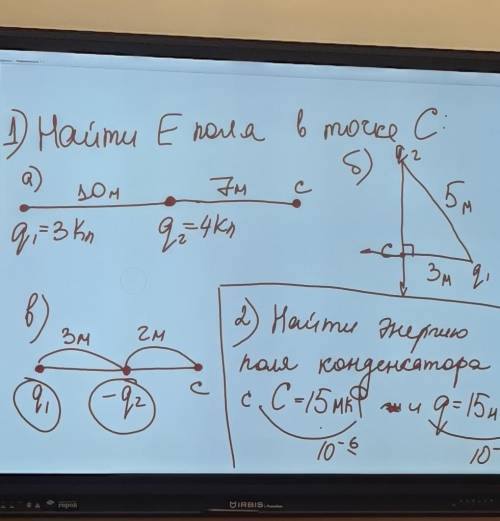 1) Найти E поля в точке C:
а)
10м 7м C
q₁=3Кл q₂=4Кл
б)
q₂
5м
C
3м q₁
в)
3м 2м
q₁ -q₂ C
2) Найти энергию
поля конденсатора
с C=15мкФ и q=15м
10⁻⁶ 10⁻
IRBIS